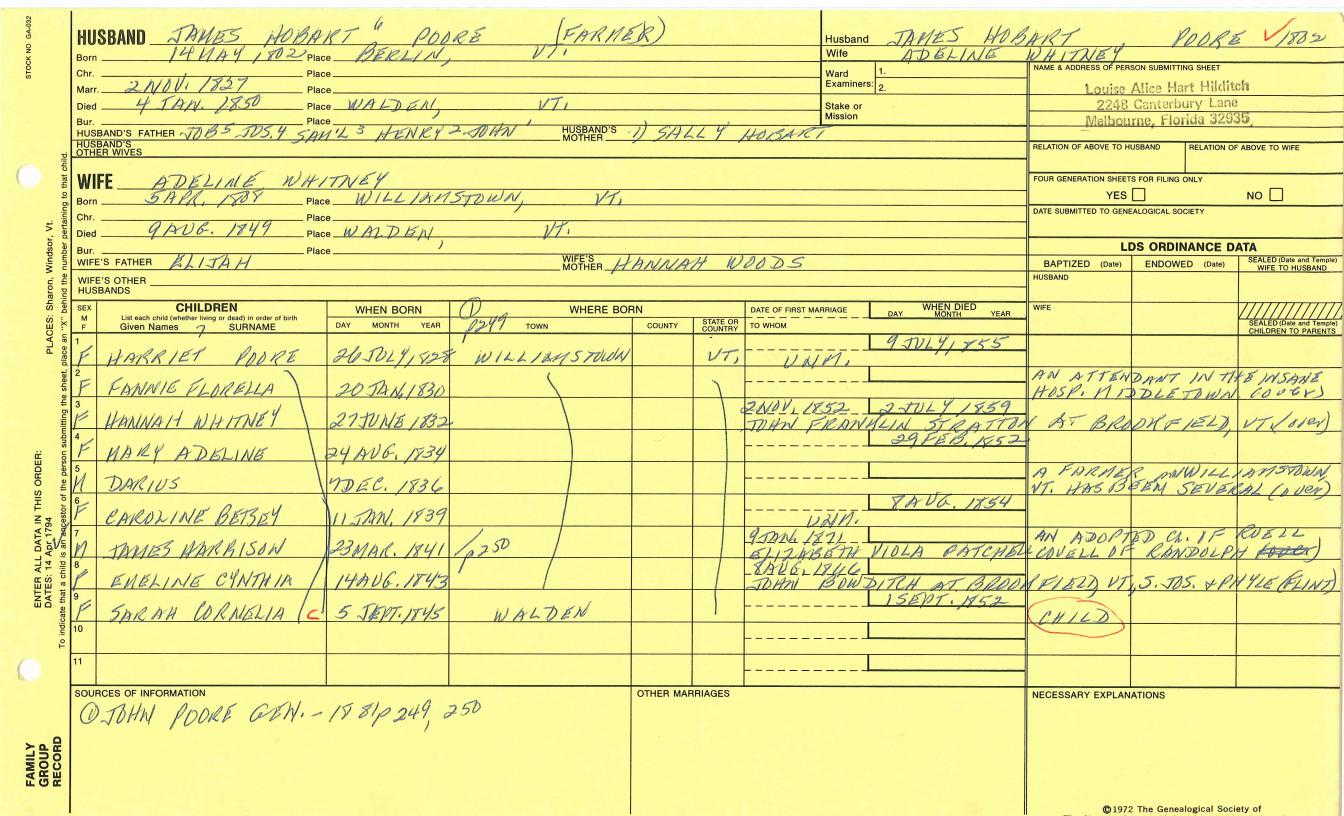 STOCK NO. GA-032
HUSBAND JAMES HOBART 6 POORE (FARMER)
Born 14 MAY, 1802 Place BERLIN, VT.
Chr. Place
Marr. 2 NOV. 1827 Place
Died 4 JAN. 1850 Place WALDEN, VT.
Bur. Place
HUSBAND'S FATHER JOB5 JOS.4 SAM'L3 HENRY2 JOHN1 HUSBAND'S MOTHER 1) SALLY HOBART
HUSBAND'S OTHER WIVES
Husband JAMES HOBART POORE ✓1802
Wife ADELINE WHITNEY
Ward Examiners: 1.
2.
Stake or Mission
NAME & ADDRESS OF PERSON SUBMITTING SHEET
Louise Alice Hart Hilditch
2248 Canterbury Lane
Melbourne, Florida 32935
RELATION OF ABOVE TO HUSBAND RELATION OF ABOVE TO WIFE
FOUR GENERATION SHEETS FOR FILING ONLY
YES NO
DATE SUBMITTED TO GENEALOGICAL SOCIETY
WIFE ADELINE WHITNEY
Born 5 APR. Place WILLIAMSTOWN, VT.
Chr. Place
Died 9 AUG. 1849 Place WALDEN, VT.
Bur. Place
WIFE'S FATHER ELIJAH WIFE'S MOTHER HANNAH WOODS
WIFE'S OTHER HUSBANDS
LDS ORDINANCE DATA
BAPTIZED (Date) ENDOWED (Date) SEALED (Date and Temple) WIFE TO HUSBAND
HUSBAND
WIFE
SEALED (Date and Temple) CHILDREN TO PARENTS
SEX M F CHILDREN List each child (whether living or dead) in order of birth Given Names 7 SURNAME
WHEN BORN DAY MONTH YEAR
① p249 WHERE BORN TOWN COUNTY STATE OR COUNTRY
DATE OF FIRST MARRIAGE TO WHOM
WHEN DIED DAY MONTH YEAR
1 F HARRIET POORE 26 JULY, 1828 WILLIAMSTOWN VT. UNM. 9 JULY, 1855
2 F FANNIE FLORELLA 20 JAN, 1830 AN ATTENDANT IN THE INSANE HOSP. MIDDLETOWN (over)
3 F HANNAH WHITNEY 27 JUNE 1832 2 NOV. 1852 2 JULY 1859 JOHN FRANKLIN STRATTON AT BROOKFIELD, VT. (over)
4 F MARY ADELINE 24 AUG. 1834 29 FEB. 1852
5 M DARIUS 7 DEC. 1836 A FARMER WILLIAMSTOWN, VT. HAS BEEN SEVERAL (over)
6 F CAROLINE BETSEY 11 JAN. 1839 UNM. 8 AUG. 1854
7 M JAMES HARRISON 23 MAR. 1841 /p250 9 JAN. 1871 ELIZABETH VIOLA PATCHELL AN ADOPTED CH. OF RUELL COVELL OF RANDOLPH
8 F EMELINE CYNTHIA 14 AUG. 1843 8 AUG. 1866 JOHN BOWDITH AT BROOKFIELD, VT., S. JOS. & PHYLE (FLINT)
9 F SARAH CORNELIA C 5 SEPT. 1845 WALDEN 1 SEPT. 1852 CHILD
10
11
SOURCES OF INFORMATION
① JOHN POORE GEN. - 1881 p 249, 250
OTHER MARRIAGES
NECESSARY EXPLANATIONS
©1972 The Genealogical Society of
PLACES: Sharon, Windsor, Vt.
To indicate that a child is an ancestor of the person submitting the sheet, place an "X" behind the number pertaining to that child.
ENTER ALL DATA IN THIS ORDER:
DATES: 14 Apr 1794
FAMILY GROUP RECORD